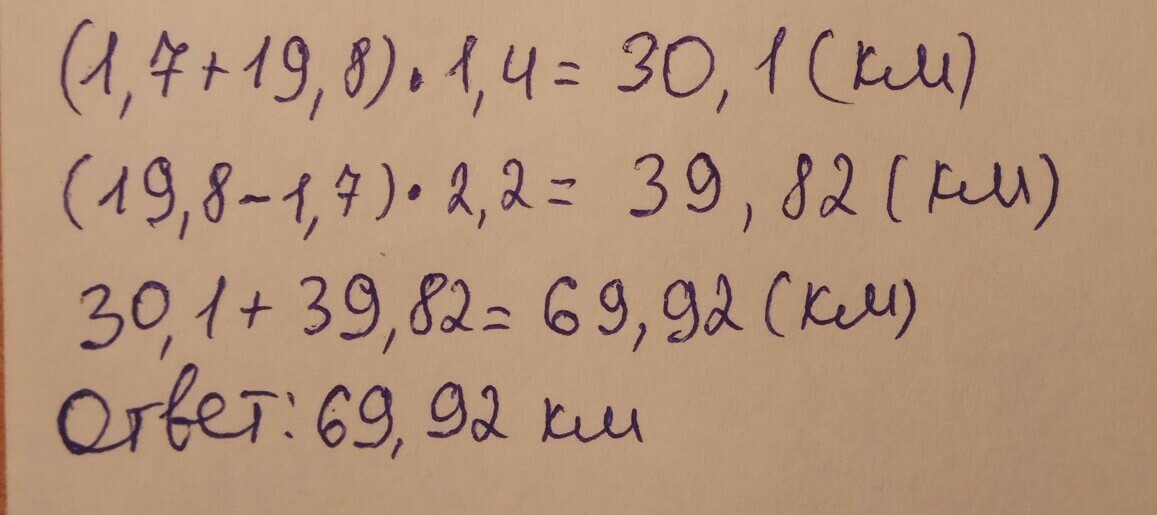 (1,7+19,8)·1,4= 30,1(км)
(19,8-1,7)·2,2= 39,82(км)
30,1+39,82=69,92(км)
Ответ: 69,92 км